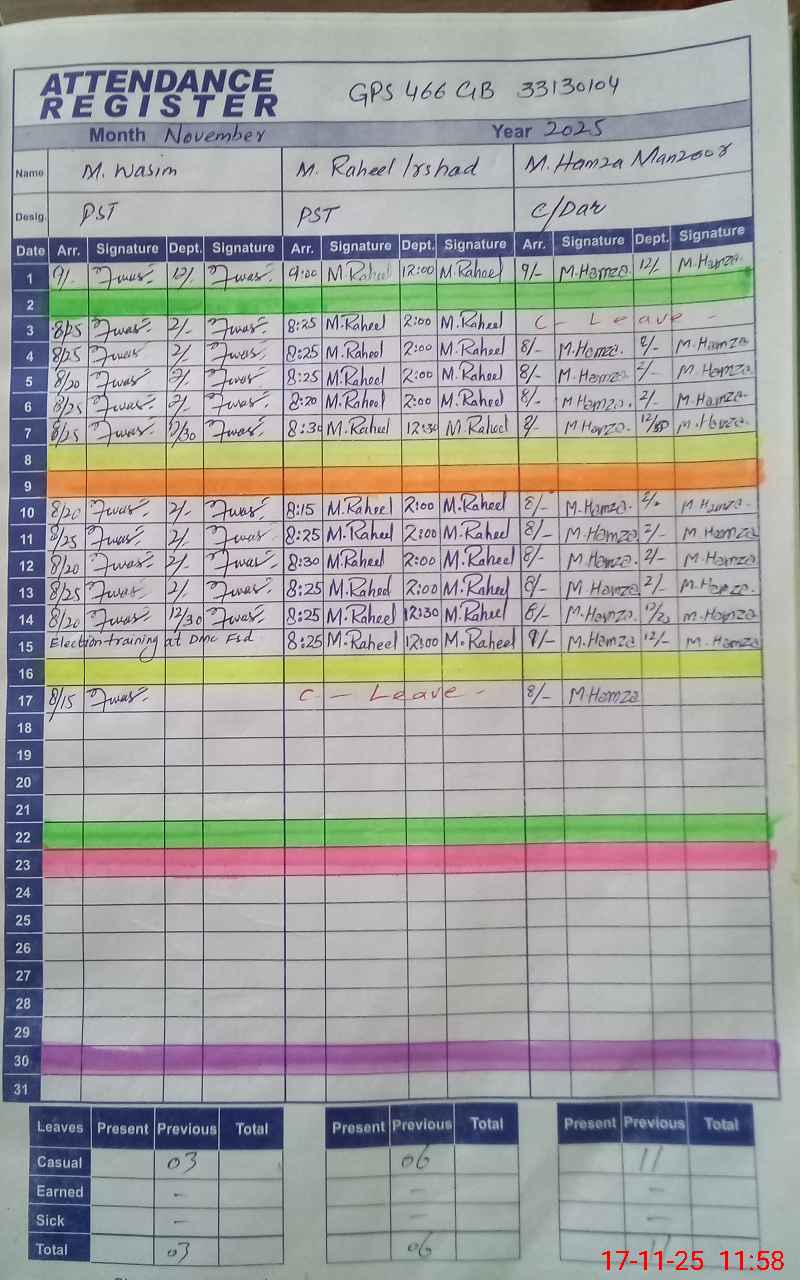 ATTENDANCE REGISTER GPS 466 GB 33130104
Month November Year 2025
Name M. Wasim M. Raheel Irshad M. Hamza Manzoor
Desig. PST PST C/Dar
Date Arr. Signature Dept. Signature Arr. Signature Dept. Signature Arr. Signature Dept. Signature
1 9/- 12/- 9:00 M.Raheel 12:00 M.Raheel 9/- M.Hamza. 12/- M.Hamza.
2
3 8/25 2/- 8:25 M.Raheel 2:00 M.Raheel C - Leave -
4 8/25 2/- 8:25 M.Raheel 2:00 M.Raheel 8/- M.Hamza. 2/- M.Hamza
5 8/20 2/- 8:25 M.Raheel 2:00 M.Raheel 8/- M.Hamza 2/- M.Hamza.
6 8/25 2/- 8:20 M.Raheel 2:00 M.Raheel 8/- M.Hamza. 2/- M.Hamza.
7 8/25 12/30 8:30 M.Raheel 12:30 M.Raheel 8/- M.Hamza. M.Hamza.
8
9
10 8/20 2/- 8:15 M.Raheel 2:00 M.Raheel 8/- M.Hamza. 2/- M.Hamza.
11 8/25 2/- 8:25 M.Raheel 2:00 M.Raheel 8/- M.Hamza. 2/- M.Hamza
12 8/20 2/- 8:30 M.Raheel 2:00 M.Raheel 8/- M.Hamza. 2/- M.Hamza
13 8/25 2/- 8:25 M.Raheel 2:00 M.Raheel 8/- M.Hamza 2/- M.Hamza.
14 8/20 12/30 8:25 M.Raheel 12:30 M.Raheel 8/- M.Hamza. M.Hamza
15 Election training at DMC Fsd 8:25 M.Raheel 12:00 M.Raheel 9/- M.Hamza 12/- M.Hamza
16
17 8/15 C - Leave - 8/- M.Hamza
18
19
20
21
22
23
24
25
26
27
28
29
30
31
Leaves Present Previous Total Present Previous Total Present Previous Total
Casual 03 06 11
Earned - - -
Sick - - -
Total 03 06 11
17-11-25 11:58